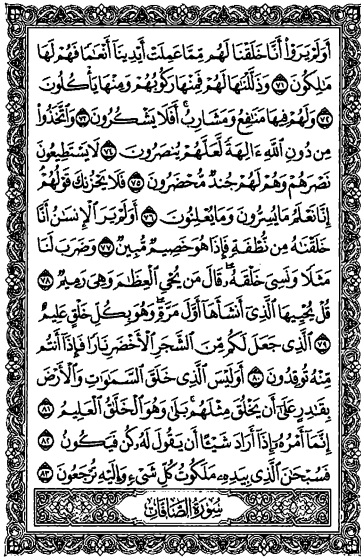 أَوَلَمْ يَرَوْا۟ أَنَّا خَلَقْنَا لَهُم مِّمَّا عَمِلَتْ أَيْدِينَآ أَنْعَـٰمًا فَهُمْ لَهَا
مَـٰلِكُونَ ٧١ وَذَلَّلْنَـٰهَا لَهُمْ فَمِنْهَا رَكُوبُهُمْ وَمِنْهَا يَأْكُلُونَ
٧٢ وَلَهُمْ فِيهَا مَنَـٰفِعُ وَمَشَارِبُ ۖ أَفَلَا يَشْكُرُونَ ٧٣ وَٱتَّخَذُوا۟
مِن دُونِ ٱللَّهِ ءَالِهَةً لَّعَلَّهُمْ يُنصَرُونَ ٧٤ لَا يَسْتَطِيعُونَ
نَصْرَهُمْ وَهُمْ لَهُمْ جُندٌ مُّحْضَرُونَ ٧٥ فَلَا يَحْزُنكَ قَوْلُهُمْ ۘ
إِنَّا نَعْلَمُ مَا يُسِرُّونَ وَمَا يُعْلِنُونَ ٧٦ أَوَلَمْ يَرَ ٱلْإِنسَـٰنُ أَنَّا
خَلَقْنَـٰهُ مِن نُّطْفَةٍ فَإِذَا هُوَ خَصِيمٌ مُّبِينٌ ٧٧ وَضَرَبَ لَنَا
مَثَلًا وَنَسِىَ خَلْقَهُۥ ۖ قَالَ مَن يُحْىِ ٱلْعِظَـٰمَ وَهِىَ رَمِيمٌ ٧٨
قُلْ يُحْيِيهَا ٱلَّذِىٓ أَنشَأَهَآ أَوَّلَ مَرَّةٍ ۖ وَهُوَ بِكُلِّ خَلْقٍ عَلِيمٌ
٧٩ ٱلَّذِى جَعَلَ لَكُم مِّنَ ٱلشَّجَرِ ٱلْأَخْضَرِ نَارًا فَإِذَآ أَنتُم
مِّنْهُ تُوقِدُونَ ٨٠ أَوَلَيْسَ ٱلَّذِى خَلَقَ ٱلسَّمَـٰوَٰتِ وَٱلْأَرْضَ
بِقَـٰدِرٍ عَلَىٰٓ أَن يَخْلُقَ مِثْلَهُم ۚ بَلَىٰ وَهُوَ ٱلْخَلَّـٰقُ ٱلْعَلِيمُ ٨١
إِنَّمَآ أَمْرُهُۥٓ إِذَآ أَرَادَ شَيْـًٔا أَن يَقُولَ لَهُۥ كُن فَيَكُونُ ٨٢
فَسُبْحَـٰنَ ٱلَّذِى بِيَدِهِۦ مَلَكُوتُ كُلِّ شَىْءٍ وَإِلَيْهِ تُرْجَعُونَ ٨٣
سُورَةُ الصَّافَّاتِ